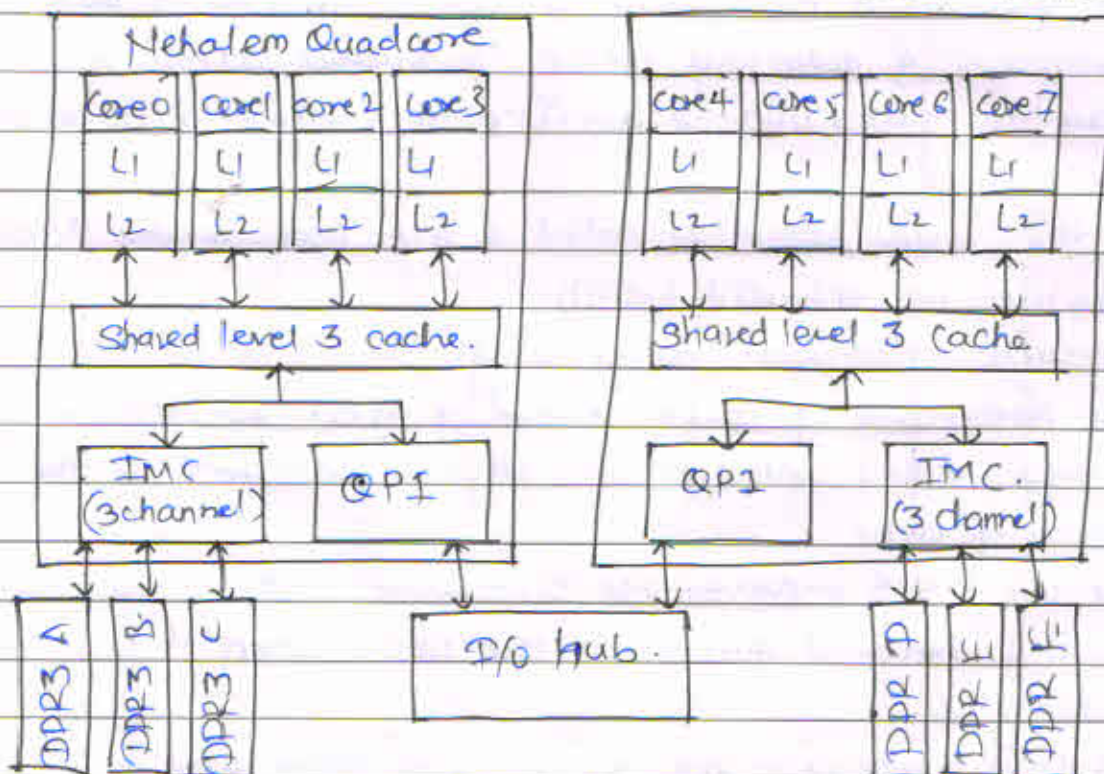 Nehalem Quadcore
Core0 Core1 core2 Core3
L1 L1 L1 L1
L2 L2 L2 L2
Shared level 3 cache.
IMC
(3channel)
QPI
DDR3 A
DDR3 B
DDR3 C
I/O hub.
core4 Core5 Core6 Core7
L1 L1 L1 L1
L2 L2 L2 L2
Shared level 3 Cache
QPI
IMC.
(3 channel)
DDR D
DDR E
DDR F